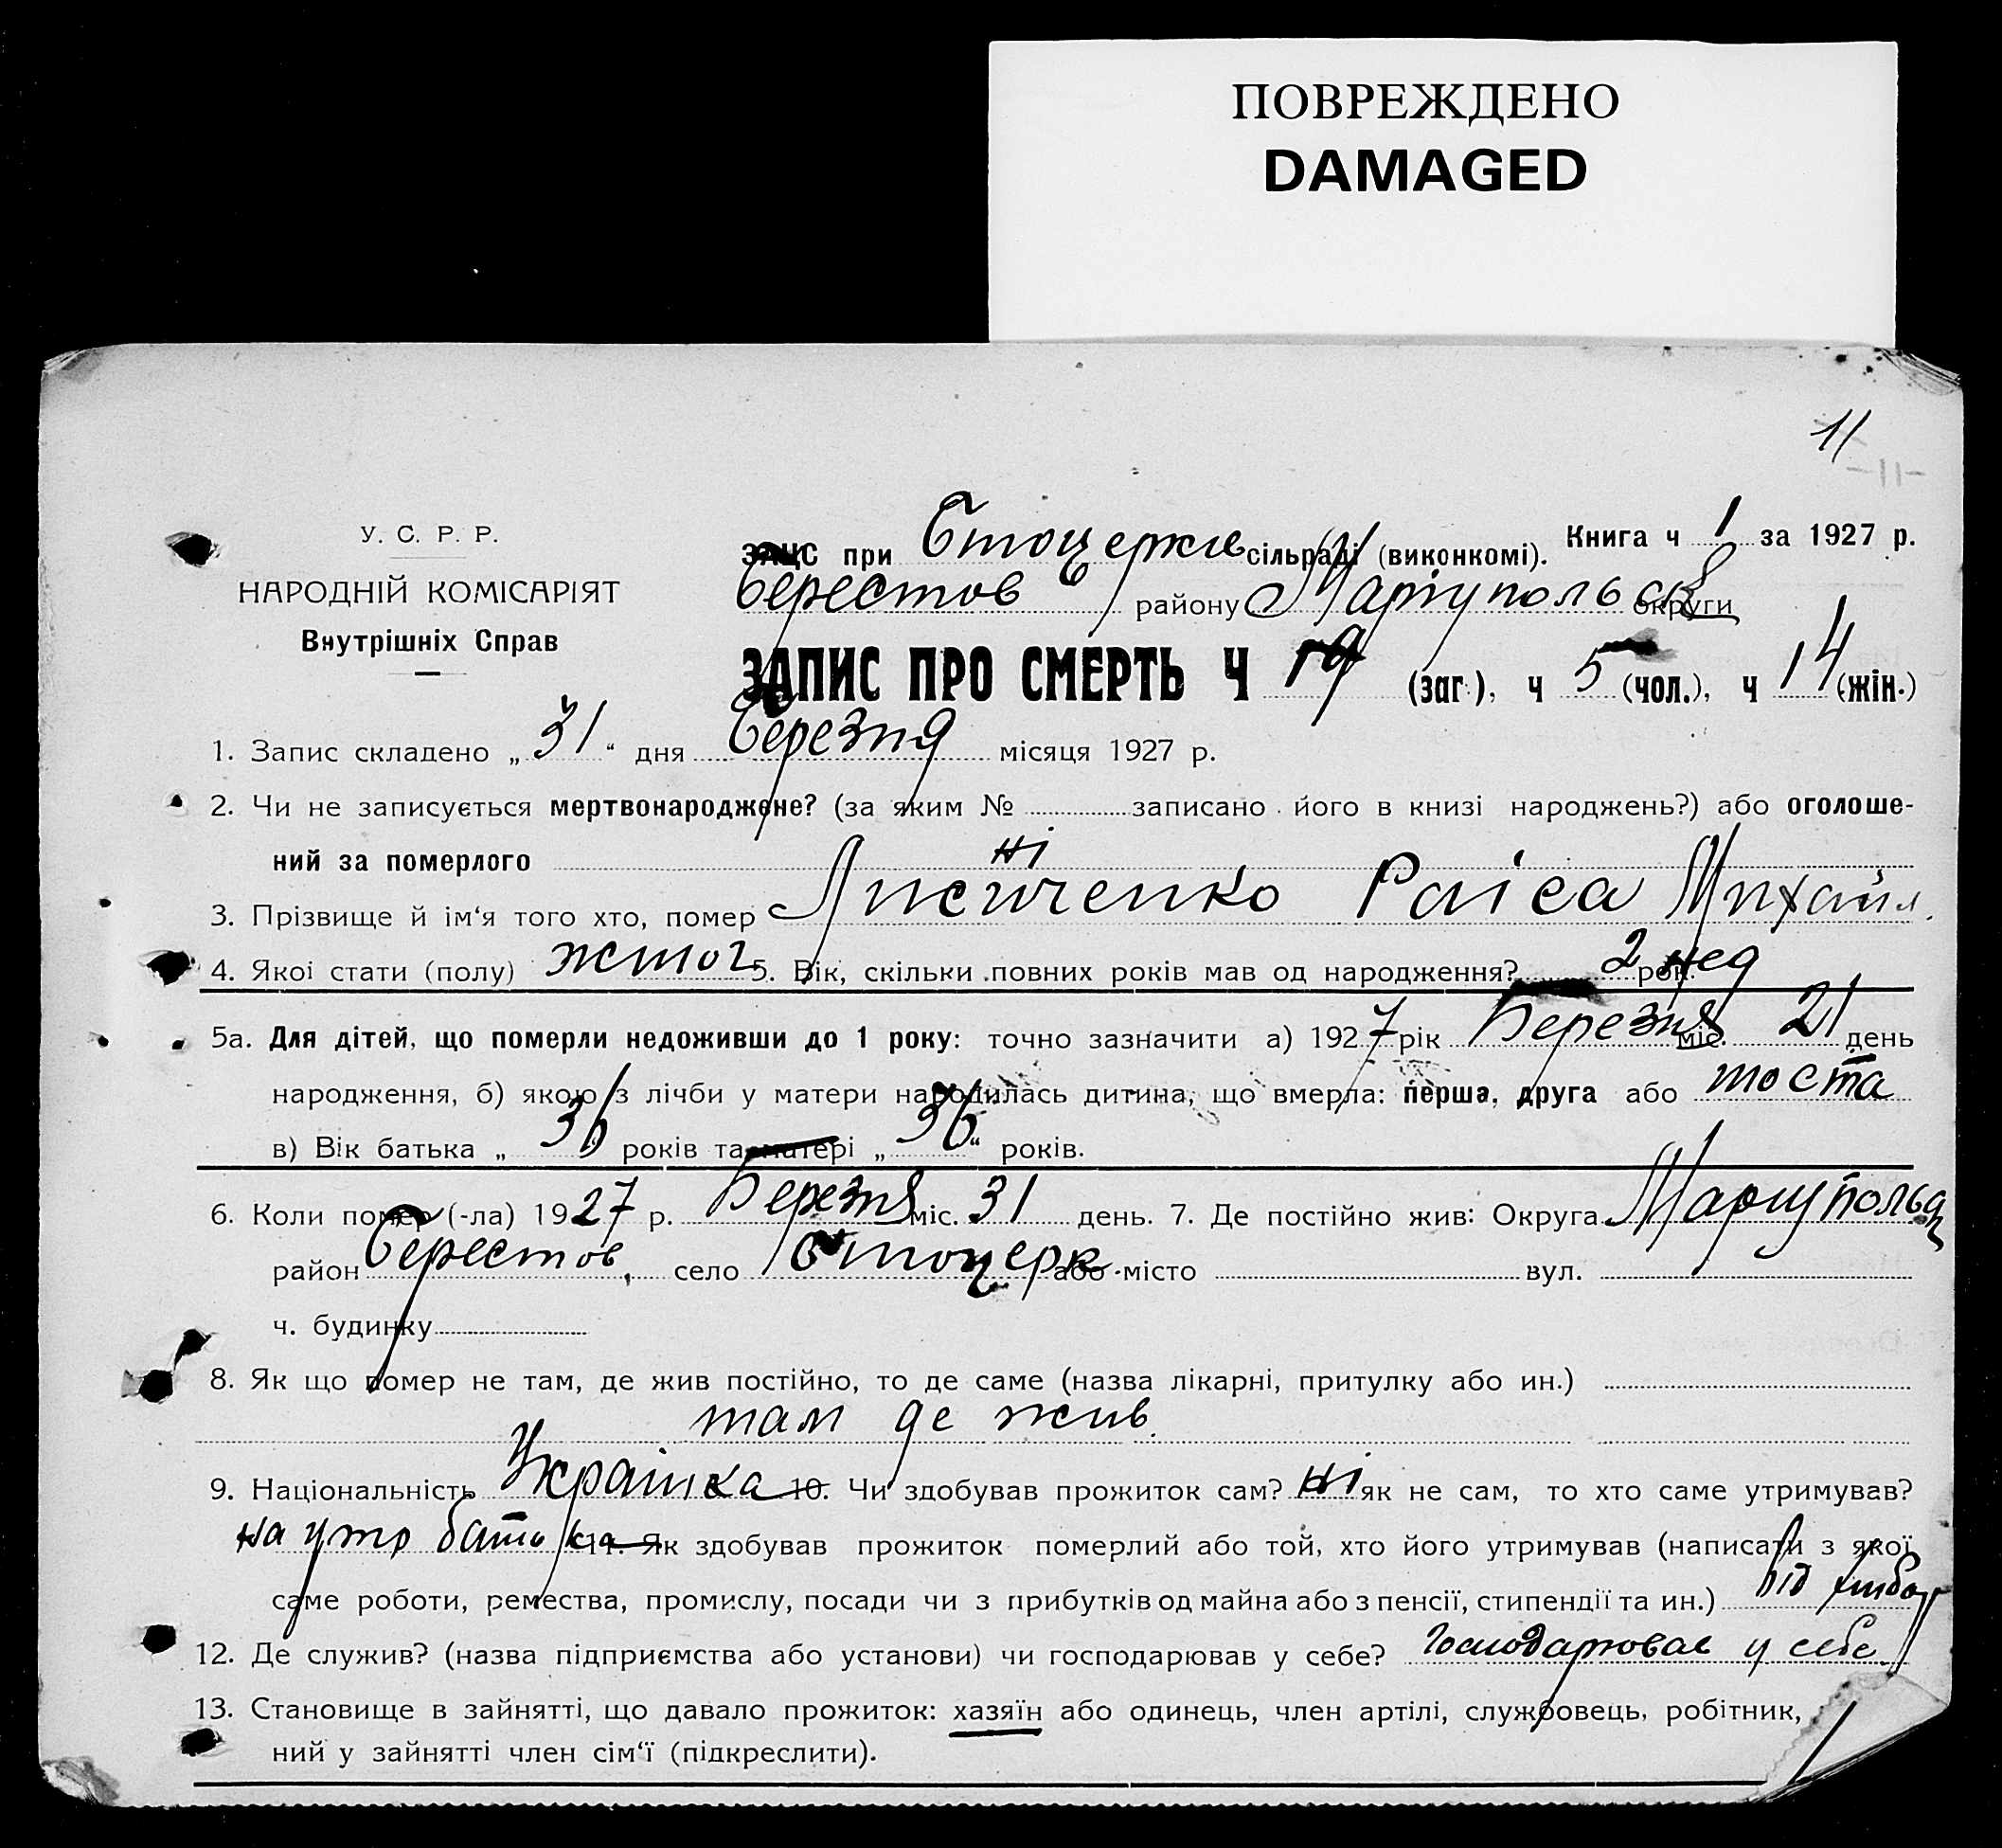 ПОВРЕЖДЕНО
DAMAGED
11
-11-
У. С. Р. Р.
НАРОДНІЙ КОМІСАРІЯТ
Внутрішніх Справ
ЗАЦС при сільраді (виконкомі). Книга ч 1 за 1927 р.
Берестов району Маріупольськ округи
ЗАПИС ПРО СМЕРТЬ Ч 19 (заг.), ч 5 (чол.), ч 14 (жін.)
1. Запис складено „ 31 “ дня Березня місяця 1927 р.
2. Чи не записується мертвонароджене? (за яким № записано його в книзі народжень?) або оголоше-
ний за померлого ні
3. Прізвище й ім‘я того хто, помер Раіса Михайл.
4. Якої стати (полу) 5. Вік, скільки повних років мав од народження? 2 нед рок.
5а. Для дітей, що померли недоживши до 1 року: точно зазначити а) 1927 рік Березня міс. 21 день
народження, б) якою з лічби у матери народилась дитина, що вмерла: перша, друга або шоста
в) Вік батька „ 36 “ років та матері „ 36 “ років.
6. Коли помер (-ла) 1927 р. Березня міс. 31 день. 7. Де постійно жив: Округа
район Берестов, село або місто вул.
ч. будинку
8. Як що помер не там, де жив постійно, то де саме (назва лікарні, притулку або ин.)
там де жив.
9. Національність Украінка 10. Чи здобував прожиток сам? ні як не сам, то хто саме утримував?
на утр батька 11. Як здобував прожиток померлий або той, хто його утримував (написати з якої
саме роботи, ремества, промислу, посади чи з прибутків од майна або з пенсії, стипендії та ин.) від
12. Де служив? (назва підприємства або установи) чи господарював у себе? господарював у себе.
13. Становище в зайнятті, що давало прожиток: хазяїн або одинець, член артілі, службовець, робітник,
ний у зайнятті член сім‘ї (підкреслити).